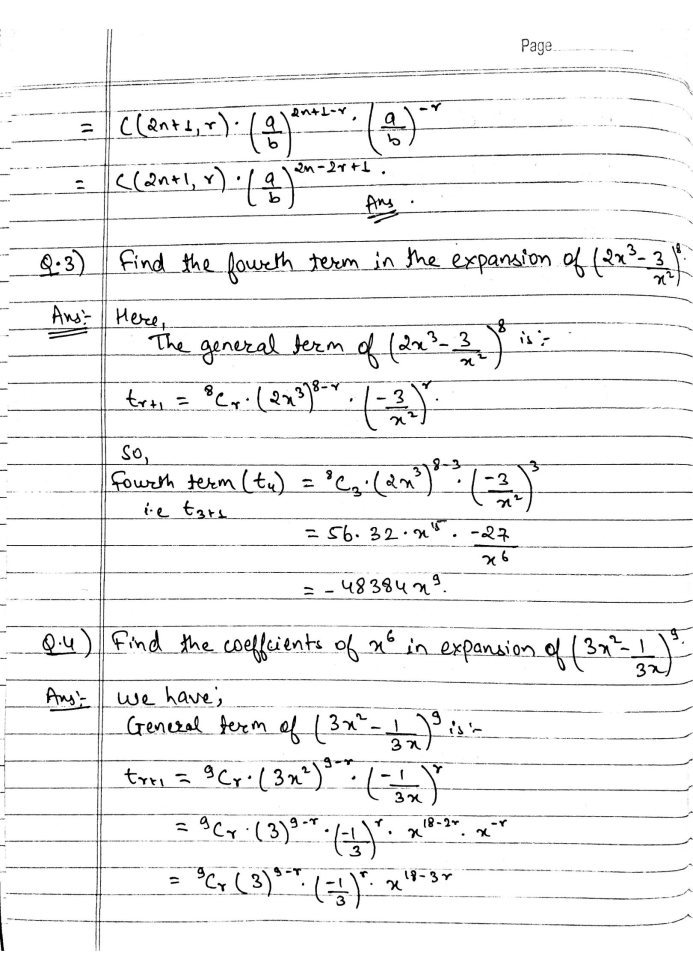 Page
= C(2n+1, r) · (a/b)^(2n+1-r) · (a/b)^(-r)
= C(2n+1, r) · (a/b)^(2n-2r+1).
Ans.
Q.3) Find the fourth term in the expansion of (2x^3 - 3/x^2)^8.
Ans:- Here,
The general term of (2x^3 - 3/x^2)^8 is :-
t_(r+1) = ^8C_r · (2x^3)^(8-r) · (-3/x^2)^r.
So,
Fourth term (t_4) = ^8C_3 · (2x^3)^(8-3) · (-3/x^2)^3
i.e t_(3+1)
= 56 · 32 · x^15 · -27/x^6
= -48384 x^9.
Q.4) Find the coefficients of x^6 in expansion of (3x^2 - 1/3x)^9.
Ans:- we have;
General term of (3x^2 - 1/3x)^9 is :-
t_(r+1) = ^9C_r · (3x^2)^(9-r) · (-1/3x)^r
= ^9C_r · (3)^(9-r) · (-1/3)^r · x^(18-2r) · x^(-r)
= ^9C_r (3)^(9-r) · (-1/3)^r · x^(18-3r)